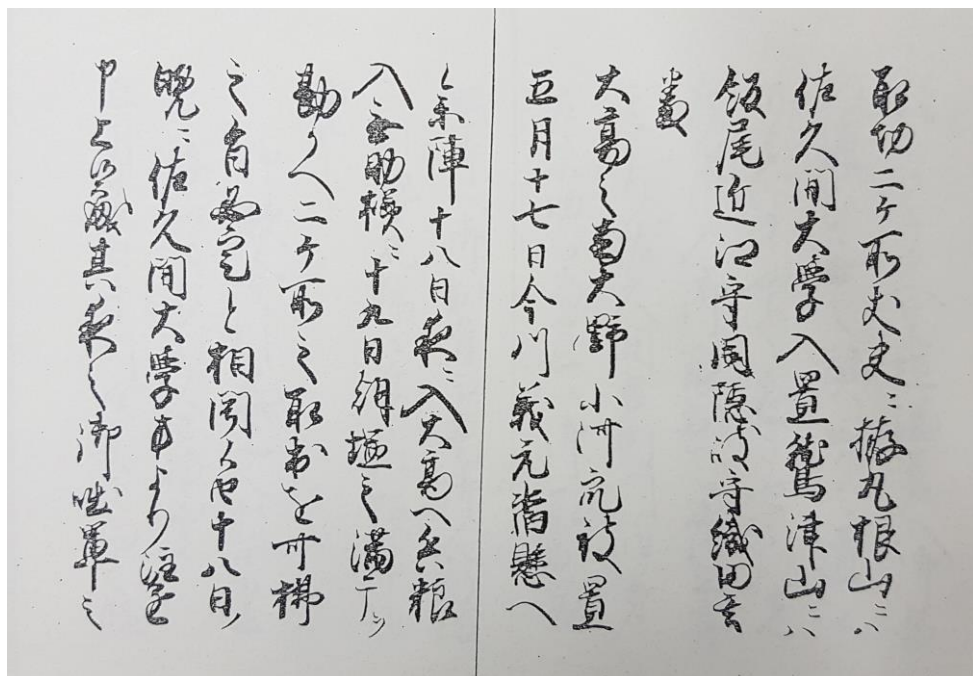 取切二ヶ所丈夫ニ拵丸根山ニハ
佐久間大學入置鷲津山ニハ
飯尾近江守同隠岐守織田玄
大高之南大野小河衆被置
五月十七日今川義元沓懸へ
参陣十八日夜ニ入大高へ兵粮
入無助様ニ十九日朝塩之満干ヲ
勘かへ二ヶ所之取出を可拂
之旨必定と相聞候由十八日ノ
晩ニ佐久間大學方より注進
申上候處其夜之御咄軍之